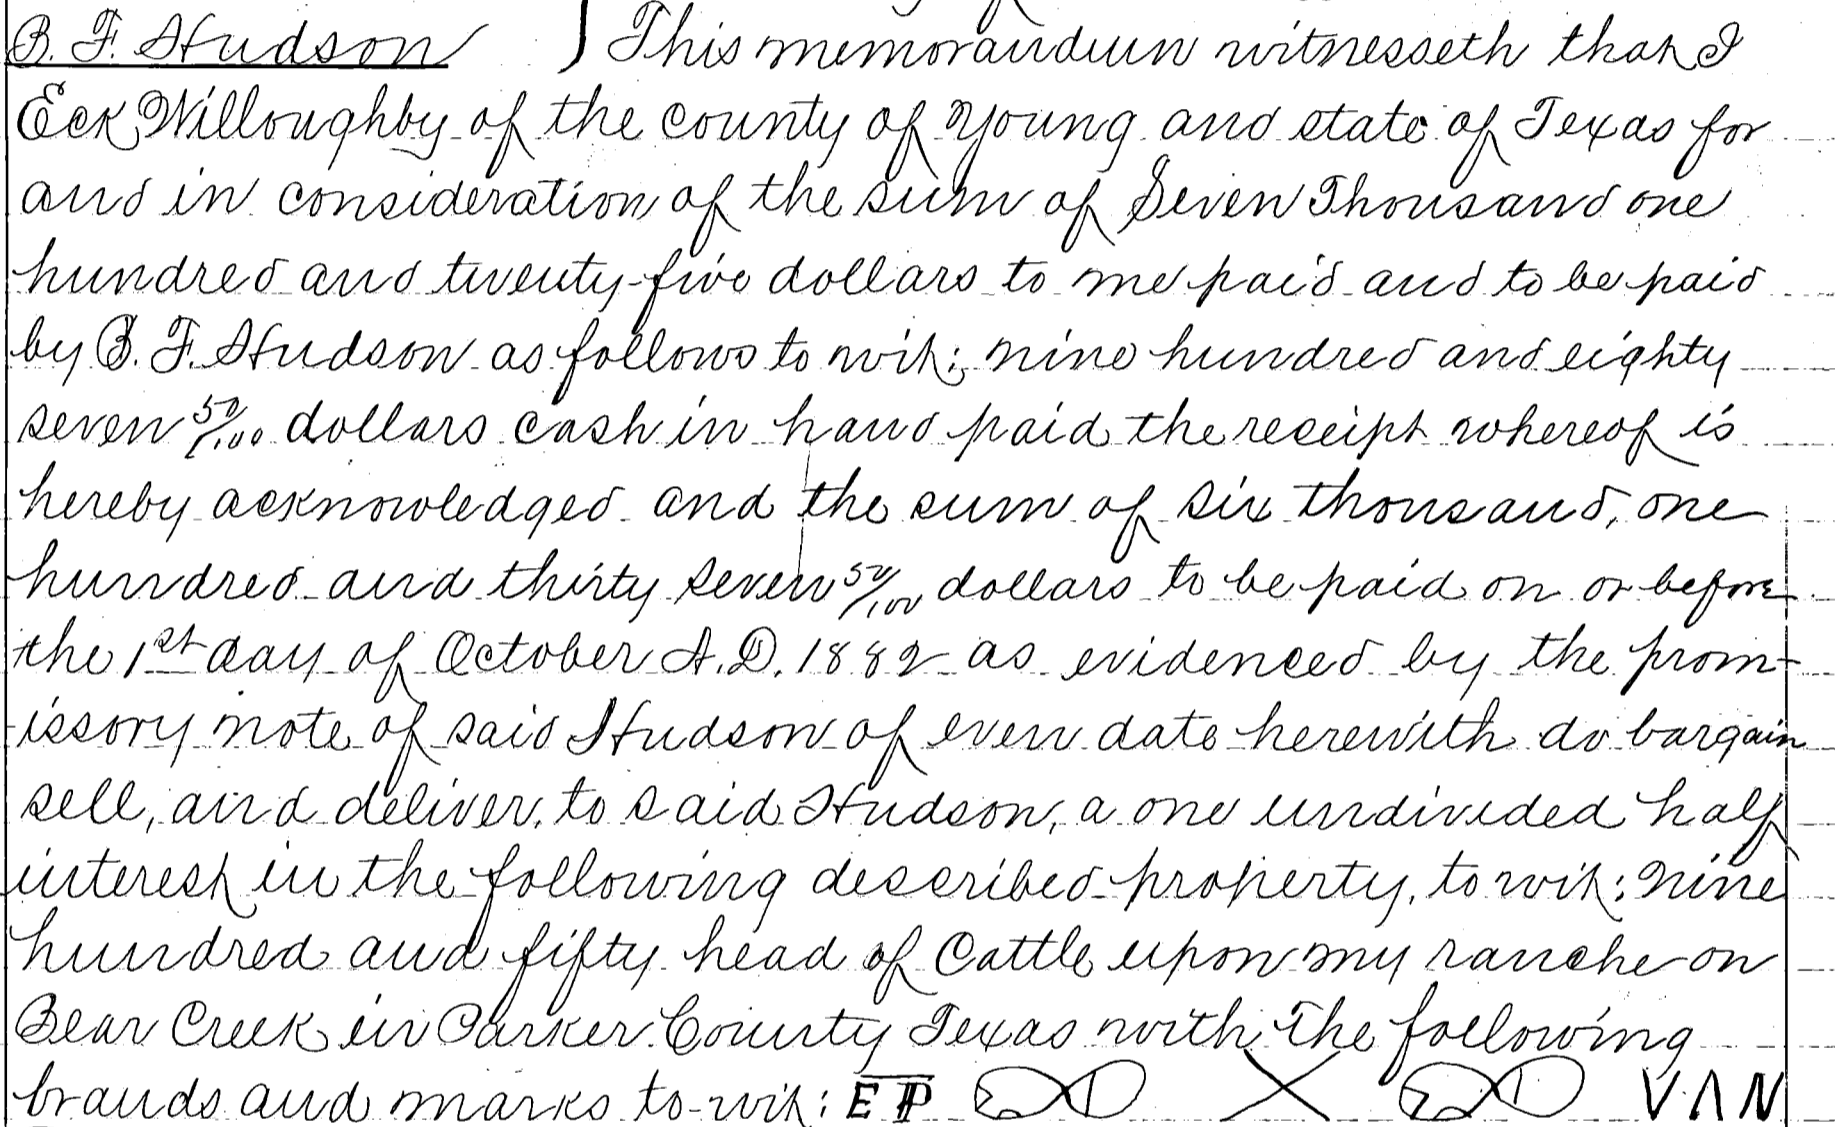 B. F. Hudson } This memorandum witnesseth that I
Eck Willoughby of the county of Young and state of Texas for
and in consideration of the sum of Seven Thousand one
hundred and twenty-five dollars to me paid and to be paid
by B. F. Hudson as follows to wit; nine hundred and eighty
seven 50/100 dollars cash in hand paid the receipt whereof is
hereby acknowledged and the sum of six thousand, one
hundred and thirty seven 50/100 dollars to be paid on or before
the 1st day of October A.D. 1882 as evidenced by the prom-
issory note of said Hudson of even date herewith do bargain
sell, and deliver, to said Hudson, a one undivided half
interest in the following described property, to wit: nine
hundred and fifty head of Cattle upon my ranche on
Bear Creek in Parker County Texas with the following
brands and marks to-wit: EP X VAN